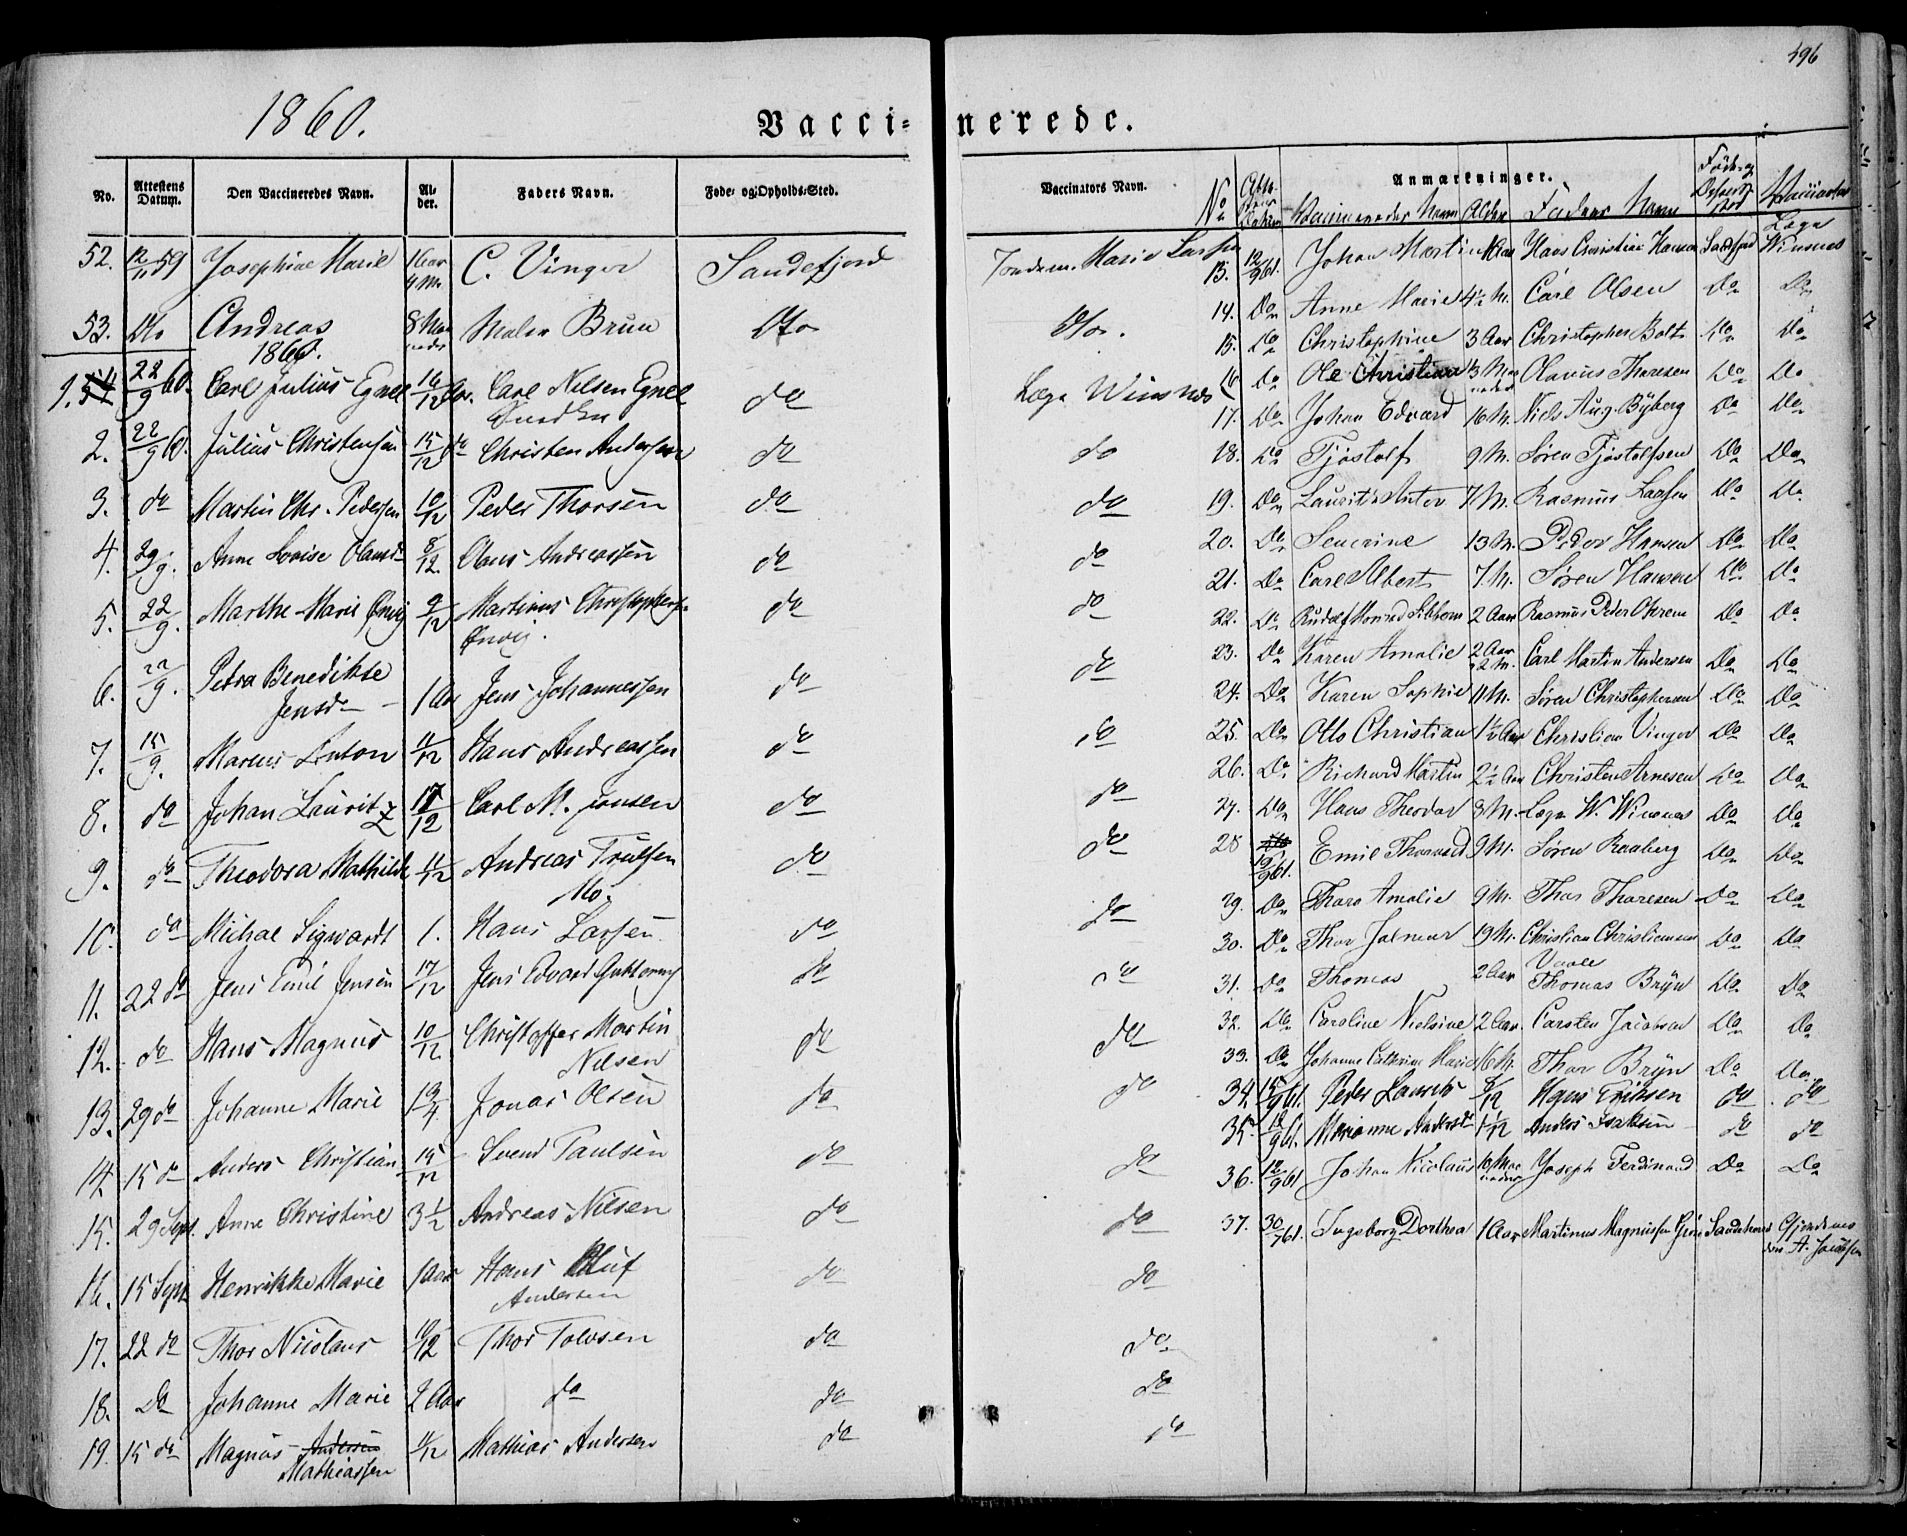 496
1860.
Vacci=nerede.
No. Attestens Datum. Den Vaccineredes Navn. Al-der. Faders Navn. Føde- og Opholds-Sted. Vaccinators Navn. Anmærkninger.
52. 12/11 59 Josephine Marie 1 Aar 4 M. C. Vinger Sandefjord Marie Larsen
53. Do Andreas 8 Maaneder Maler Bruu Dto Dto.
1860.
1. 54 22/9 60. Carl Julius Egnel 16/12 Aar. Carl Nilsen Egnel do Læge Winsnes
2. 22/9 60. Julius Christensen 15/12 do Christen Andersen do do
3. do Martin Chr. Pedersen 10/12 Peder Thorsen do do
4. 29/9. Anne Lovise Olausd 8/12. Olaus Andreassen do do
5. 22/9. Marthe Marie 9/12 Martinus do do
6. 22/9. Petra Benedikte Jensd 1 Aar Jens Johannessen do do
7. 15/9. Marcus Anton 11/12 Hans Andreassen do do
8. do Johan Lauritz 17/12 Carl M. Jonsen do do
9. do Theodora Mathilde 11/12 Andreas Trulsen Mo. do do
10. do Michal Sigwardt 1. Hans Larsen do do
11. 22 do Jens Emil Jensen 17/12 Jens Edvard do do
12. do Hans Magnus 10/12 Christoffer Martin Nilsen do do
13. 29 do Johanne Marie Jonas Olsen do do
14. 15 do Anders Christian 15/12 Svend Paulsen do do
15. 29 Sept. Anne Christine 3 1/2 Andreas Nilsen do do
16. 15 Sept Henrikke Marie 1 Aar Hans Oluf Andersen do do
17. 22 do Thor Nicolaus 10/12 Thor Tolvsen do do
18. Do Johanne Marie 2 Aar do do do
19. 15 do Magnus Andersen Mathiassen 11/12 Mathias Andersen do do
No Vaccineredes Navn Alder Faders Navn
13. 12/9 61. Johan Martin Hans Christian Hansen Sandefjord Læge Winsnes
14. Do Anne Marie 4 1/2 M. Carl Olsen Do Do
15. Do Christophine 3 Aar Christopher Bolt Do Do
16 Do Ole Christian 3 Maaneder Olavus Thoresen Do Do
17. Do Johan Edvard 16 M. Niels Aug. Byberg Do Do
18. Do Tjøstolf 9 M. Søren Tjøstolfsen Do Do
19. Do Laurits Anton 7 M. Rasmus Larsen Do Do
20. Do Severine 13 M. Peder Hansen Do Do
21. Do Carl Albert 7 M. Søren Hansen Do Do
22. Do Rudolf 2 Aar Rasmus Peder Do Do
23. Do Karen Amalie 2 Aar 2 M. Carl Martin Andersen Do Do
24. Do Karen Sophie 11 M. Søren Christophersen Do Do
25. Do Otto Christian 1 1/2 Aar Christian Vinger Do Do
26. Do Richard Martin 2 1/2 Aar Christen Arnesen Do Do
27. Do Hans Theodor 8 M. Læge W. Winsnes Do Do
28 19/9 61. Emil Thorvald 9 M. Søren Raaberg Do Do
29. Do Thora Amalie 9 M. Thor Thoresen Do Do
30. Do Thor Jalmar 19 M. Christian Christiansen Do Do
31. Do Thomas 2 Aar Thomas Bryn Do Do
32. Do Caroline Nielsine 2 Aar. Carsten Jacobsen Do Do
33. Do Johanne Cathrine Marie 16 M. Thor Bryn Do Do
34. 15/9 61. Peder Laurits 8/12 Hans Eriksen do do
35. 12/9 61. Marianne Andersd Anders Isaksen do do
36. 12/9 61 Johan Nicolaus 10 Maaneder Joseph Ferdinand Do Do
37. 30/7 61. Ingeborg Dorthea 1 Aar Martinus Magnussen A. Jacobsen